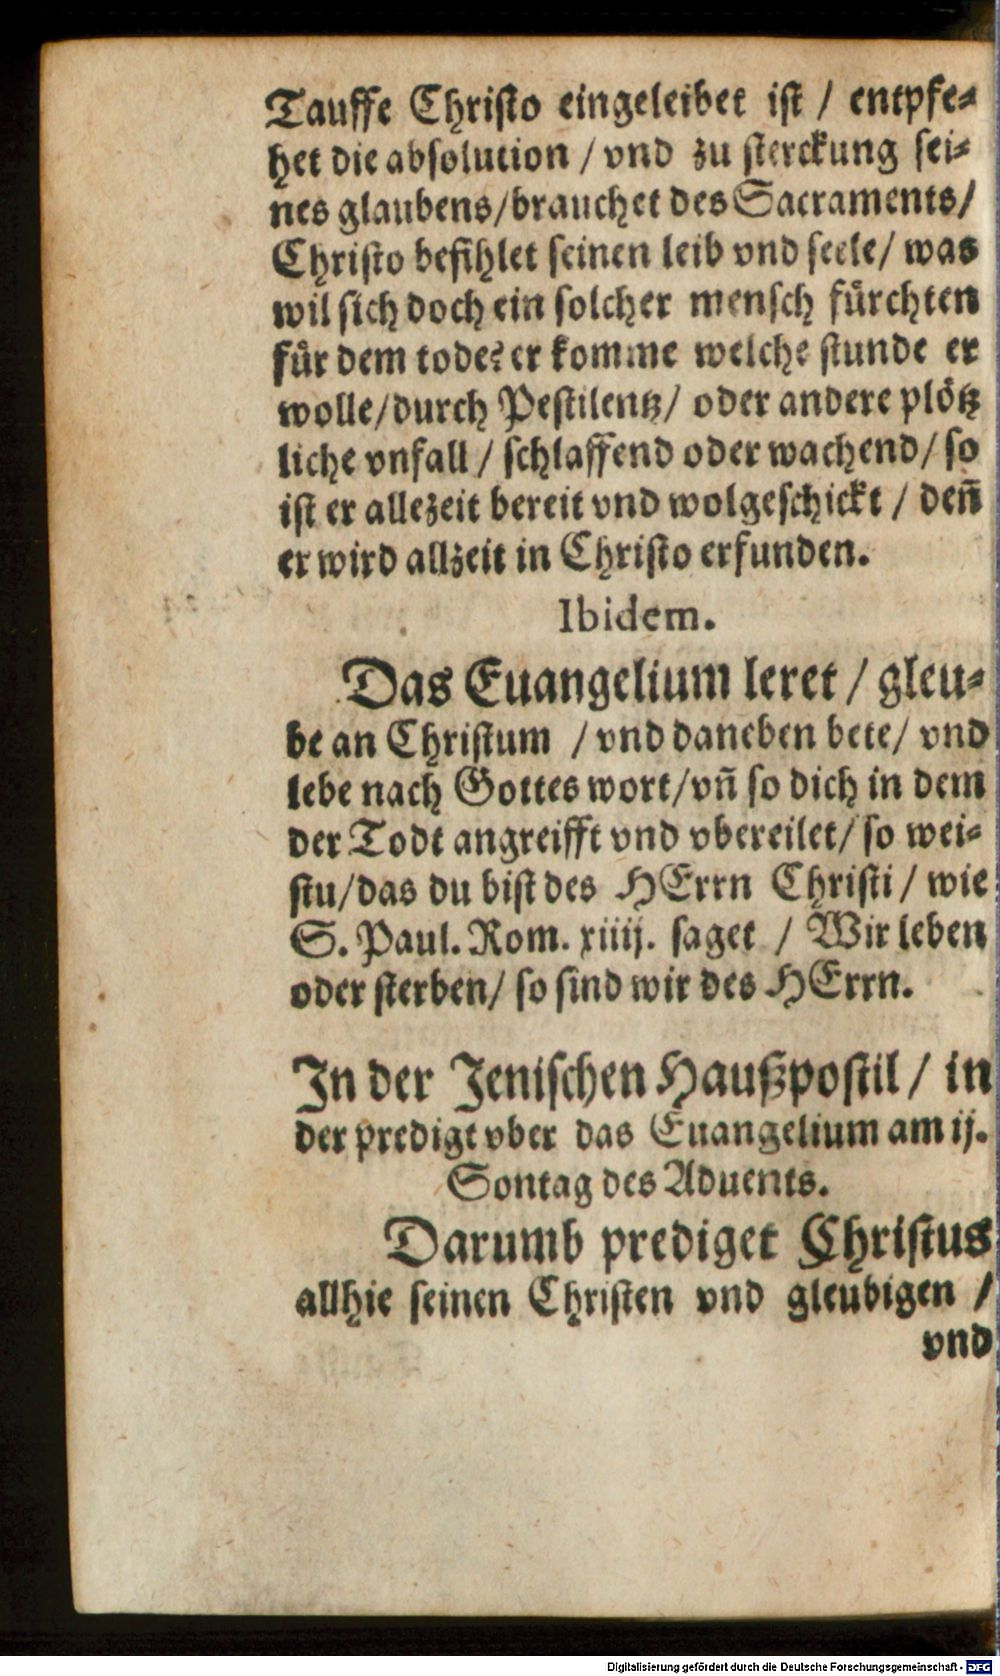 Tauffe Christo eingeleibet ist / entpfe-
het die absolution / vnd zu sterckung sei-
nes glaubens/brauchet des Sacraments/
Christo befihlet seinen leib vnd seele/ was
wil sich doch ein solcher mensch fürchten
für dem tode? er komme welche stunde er
wolle/durch Pestilentz/ oder andere plötz
liche vnfall / schlaffend oder wachend/ so
ist er allezeit bereit vnd wolgeschickt / deñ
er wird allzeit in Christo erfunden.
Ibidem.
Das Euangelium leret / gleu-
be an Christum / vnd daneben bete/ vnd
lebe nach Gottes wort/vñ so dich in dem
der Todt angreifft vnd vbereilet/ so wei-
stu/das du bist des HErrn Christi / wie
S. Paul. Rom. xiiij. saget / Wir leben
oder sterben/ so sind wir des HErrn.
In der Jenischen Haußpostil / in
der predigt vber das Euangelium am ij.
Sontag des Aduents.
Darumb prediget Christus
allhie seinen Christen vnd gleubigen /
vnd
Digitalisierung gefördert durch die Deutsche Forschungsgemeinschaft - DFG